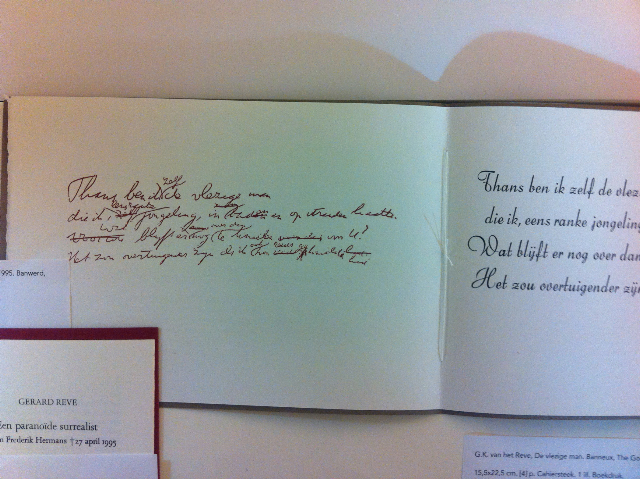 Thans ben ik zelf de vlezige man
die ik, jongeling, in en op straten haatte.
wat blijft er nog te van U?
Het zou overtuigender zijn als ik
Thans ben ik zelf de vlez
die ik, eens ranke jongeling
Wat blijft er nog over dan
Het zou overtuigender zijn
1995. Banwerd,
GERARD REVE
Een paranoïde surrealist
n Frederik Hermans † 27 april 1995
G.K. van het Reve, De vlezige man. Banneux, The Go
15,5x22,5 cm. [4] p. Cahiersteek. 1 ill. Boekdruk.